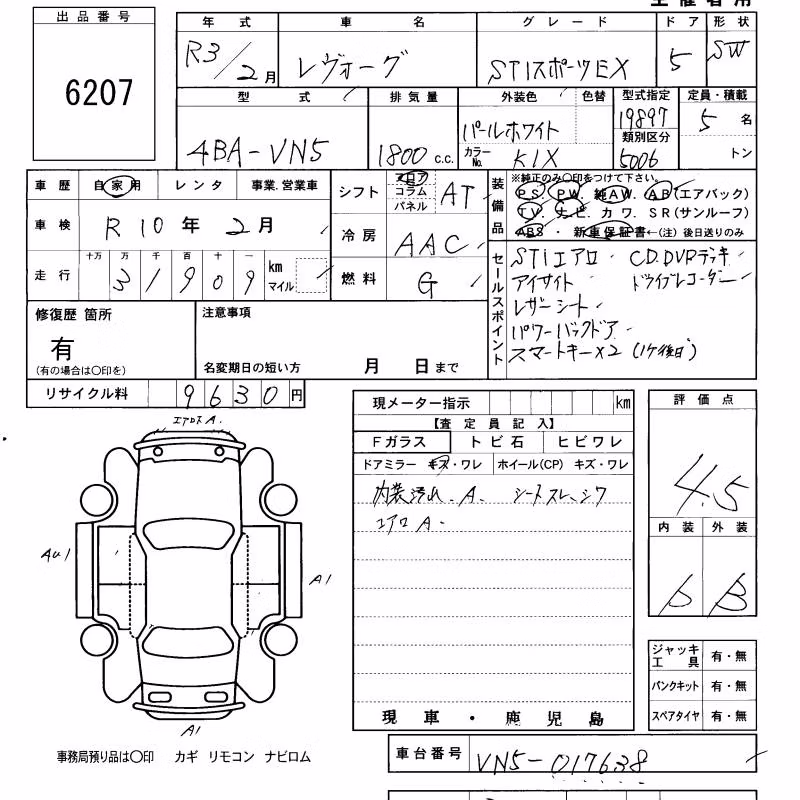 出品番号
6207
年式 車名 グレード ドア 形状
R3/2月 レヴォーグ STIスポーツEX 5 SW
型式 排気量 外装色 色替 型式指定 定員・積載
4BA-VN5 1800 c.c. パールホワイト 19897 5名
カラーNo. K1X 類別区分 5006 トン
車歴 自家用 レンタ 事業.営業車
車検 R10年2月
走行 十万 万 千 百 十 一
31909 km マイル
シフト フロア コラム パネル AT
冷房 AAC
燃料 G
装備品
※純正のみ○印をつけて下さい。
PS. PW. 純AW. AB(エアバック)
TV. ナビ. カワ. SR(サンルーフ)
ABS・新車保証書←(注)後日送りのみ
セールスポイント
STIエアロ CD.DVDデッキ
アイサイト ドライブレコーダー
レザーシート
パワーバックドア
スマートキーx2(1ケ後日)
修復歴 箇所
有
(有の場合は○印を)
注意事項
名変期日の短い方 月 日まで
リサイクル料 9630円
現メーター指示 km
【査定員記入】
Fガラス トビ石 ヒビワレ
ドアミラー キズ・ワレ ホイール(CP) キズ・ワレ
内装汚れ A. シートスレ、シワ
エアロA.
現車・鹿児島
評価点
4.5
内装 外装
b B
ジャッキ工具 有・無
パンクキット 有・無
スペアタイヤ 有・無
エアロA.
AU1
A1
A1
事務局預り品は○印 カギ リモコン ナビロム
車台番号 VN5-017638